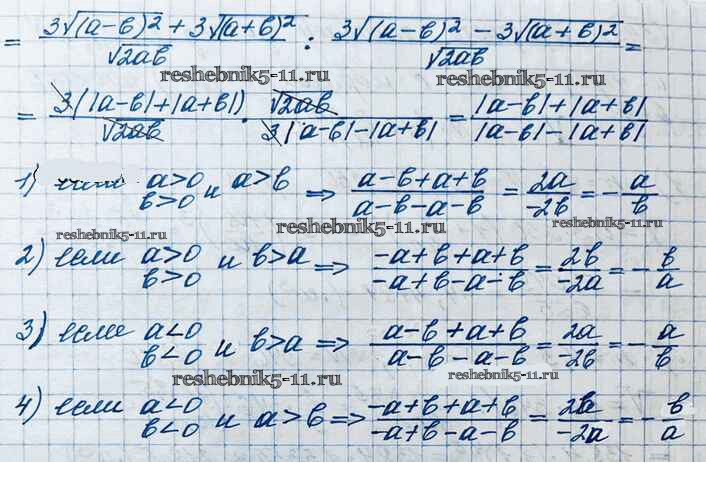 = (3√(a-b)² + 3√(a+b)²)/√2ab : (3√(a-b)² - 3√(a+b)²)/√2ab =
reshebnik5-11.ru reshebnik5-11.ru
= 3(|a-b|+|a+b|)/√2ab · √2ab/3|a-b|-|a+b| = |a-b|+|a+b|/|a-b|-|a+b|
1) a>0 b>0 и a>b ⇒ (a-b+a+b)/(a-b-a-b) = 2a/-2b = -a/b
reshebnik5-11.ru reshebnik5-11.ru reshebnik5-11.ru
2) если a>0 b>0 и b>a ⇒ (-a+b+a+b)/(-a+b-a-b) = 2b/-2a = -b/a
3) если a<0 b<0 и b>a ⇒ (a-b+a+b)/(a-b-a-b) = 2a/-2b = -a/b
reshebnik5-11.ru reshebnik5-11.ru
4) если a<0 b<0 и a>b ⇒ (-a+b+a+b)/(-a+b-a-b) = 2b/-2a = -b/a